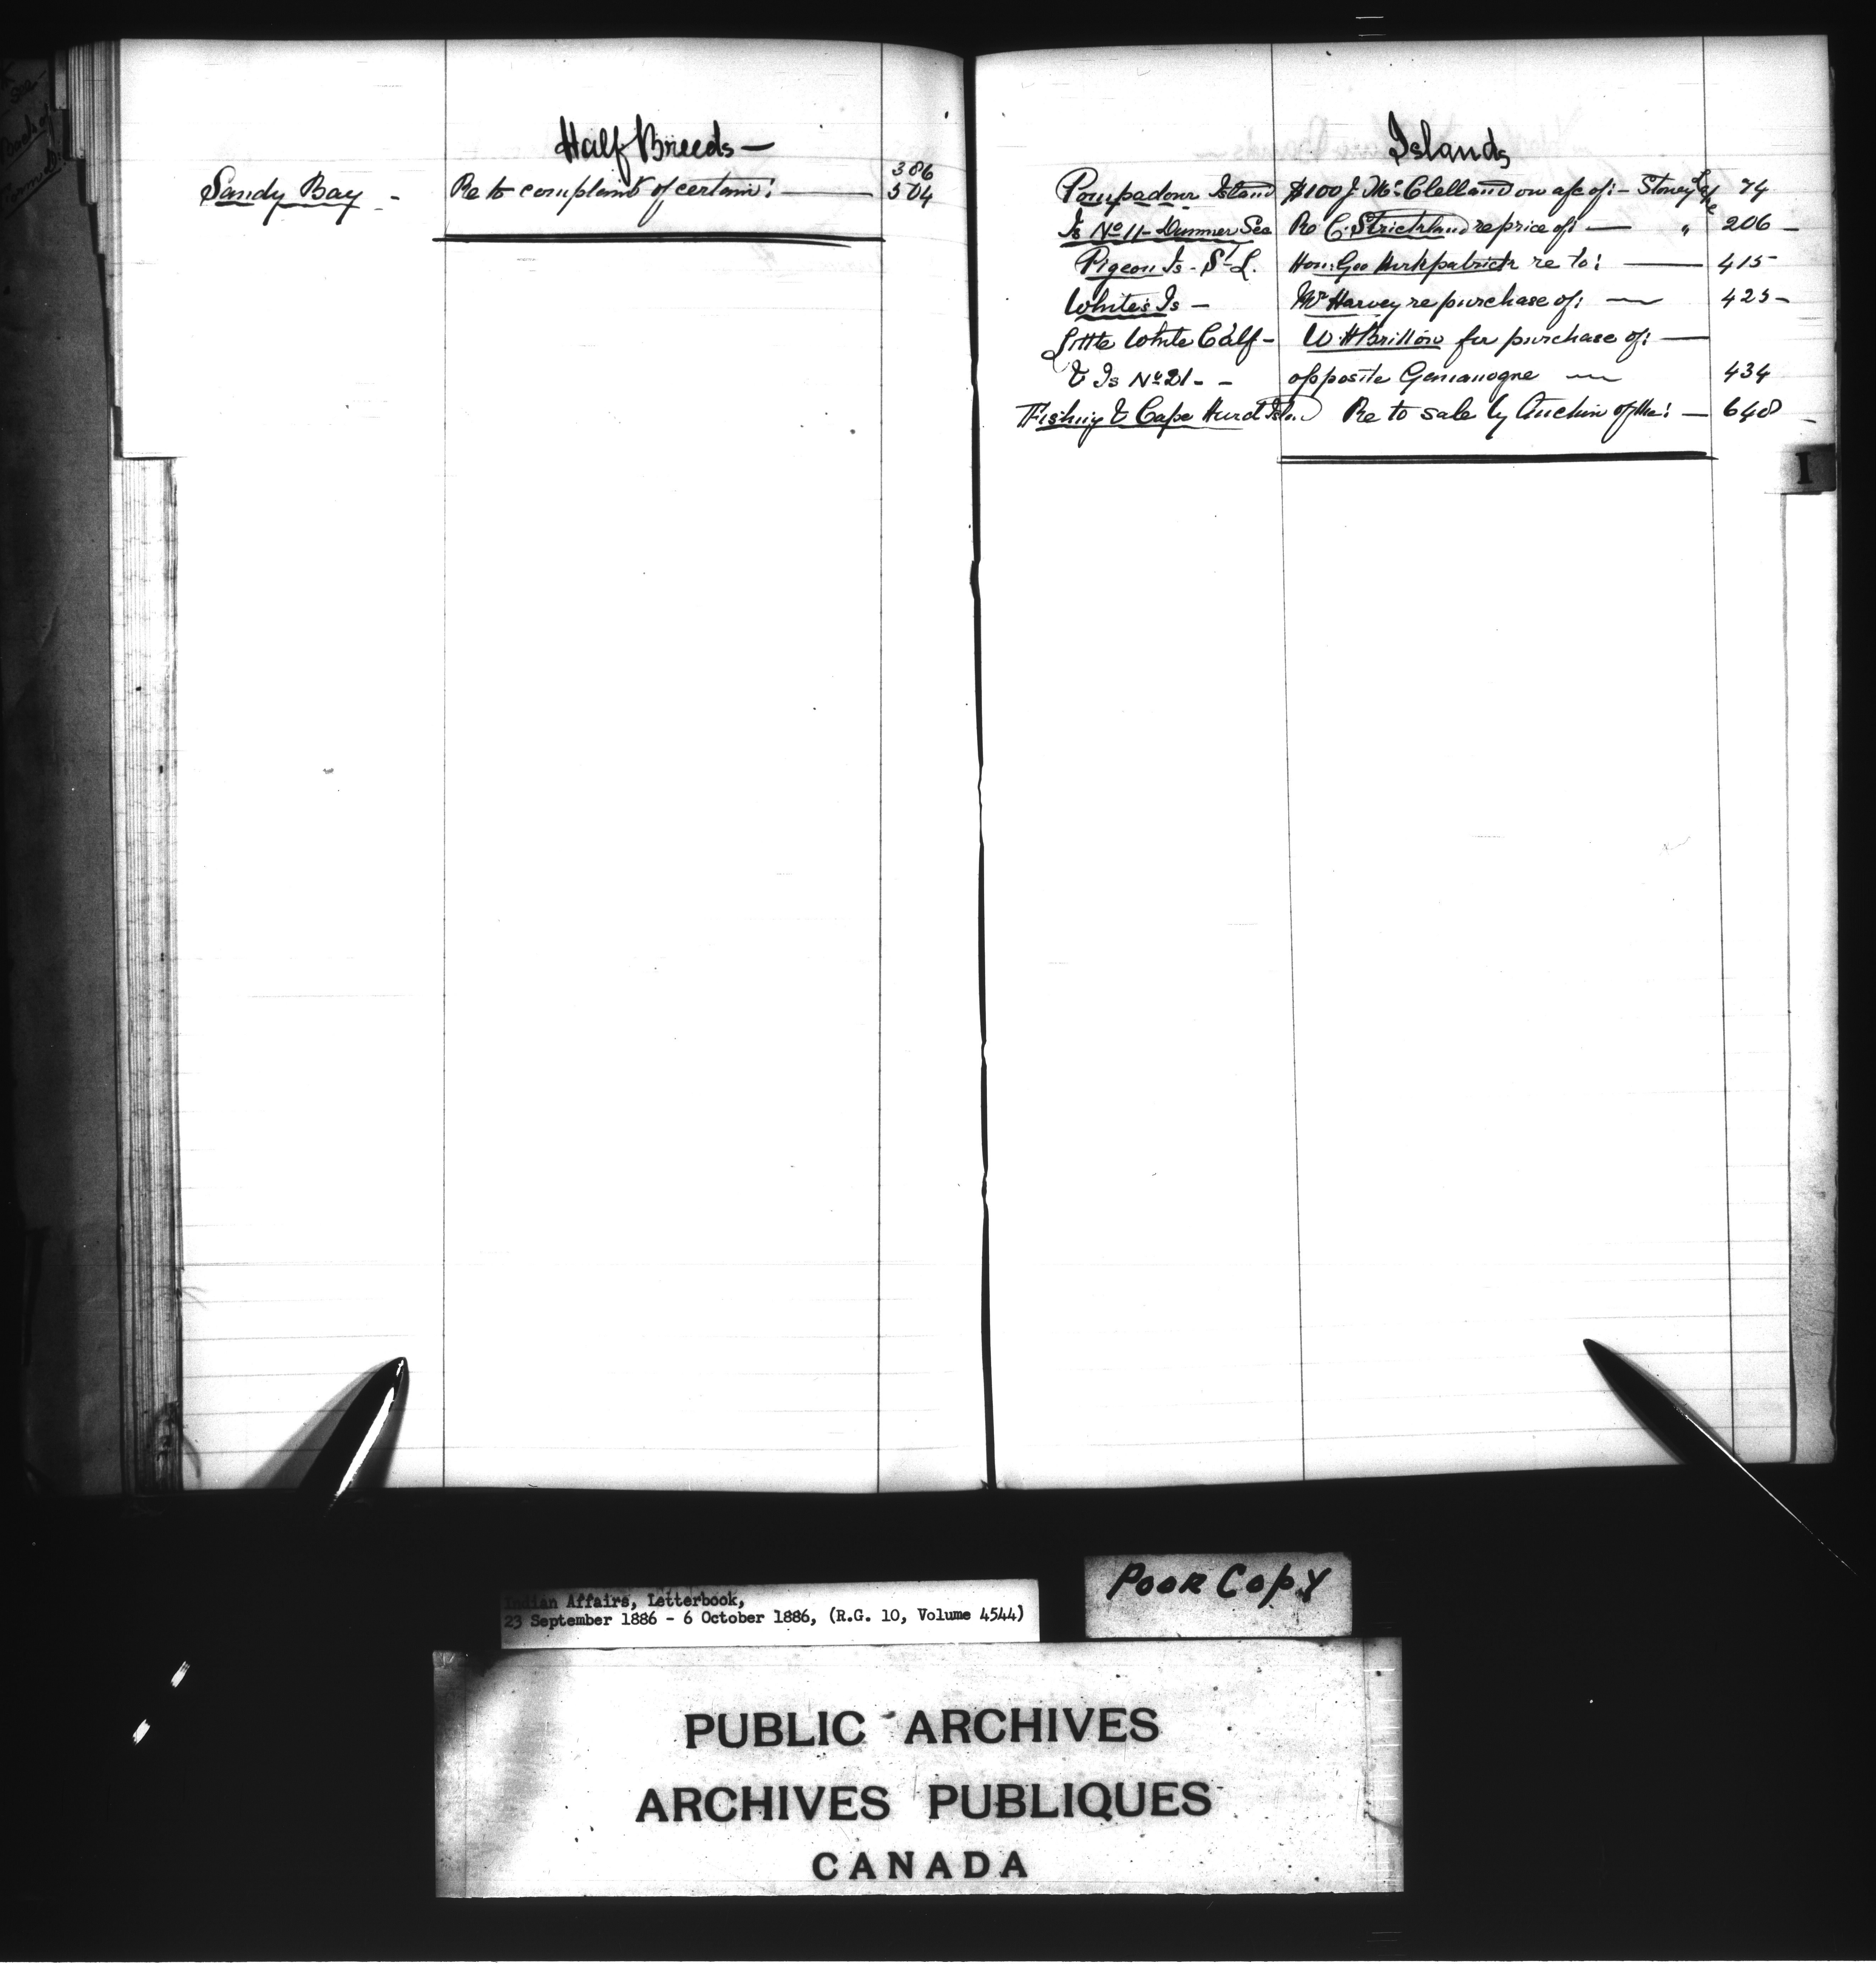 Half Breeds —
386
Sandy Bay - Re to complaint of certain: — 504
Islands
Pompadour Island $100 J McClelland on a/c of: - Stoney Lake 74
Is No 11 - Dummer Sec Re C. Strickland re price of: — " 206 -
Pigeon Is - St L. Hon: Geo Kirkpatrick re to: — 415
White's Is - Mr Harvey re purchase of: — 425 -
Little White Calf - W. H Brillow for purchase of: —
& Is No 21 - - opposite Gananogne — 434
Fishing & Cape Hurd Islan Re to sale by Auction of the: — 648 -
I
Indian Affairs, Letterbook,
23 September 1886 - 6 October 1886, (R.G. 10, Volume 4544)
POOR COPY
PUBLIC ARCHIVES
ARCHIVES PUBLIQUES
CANADA